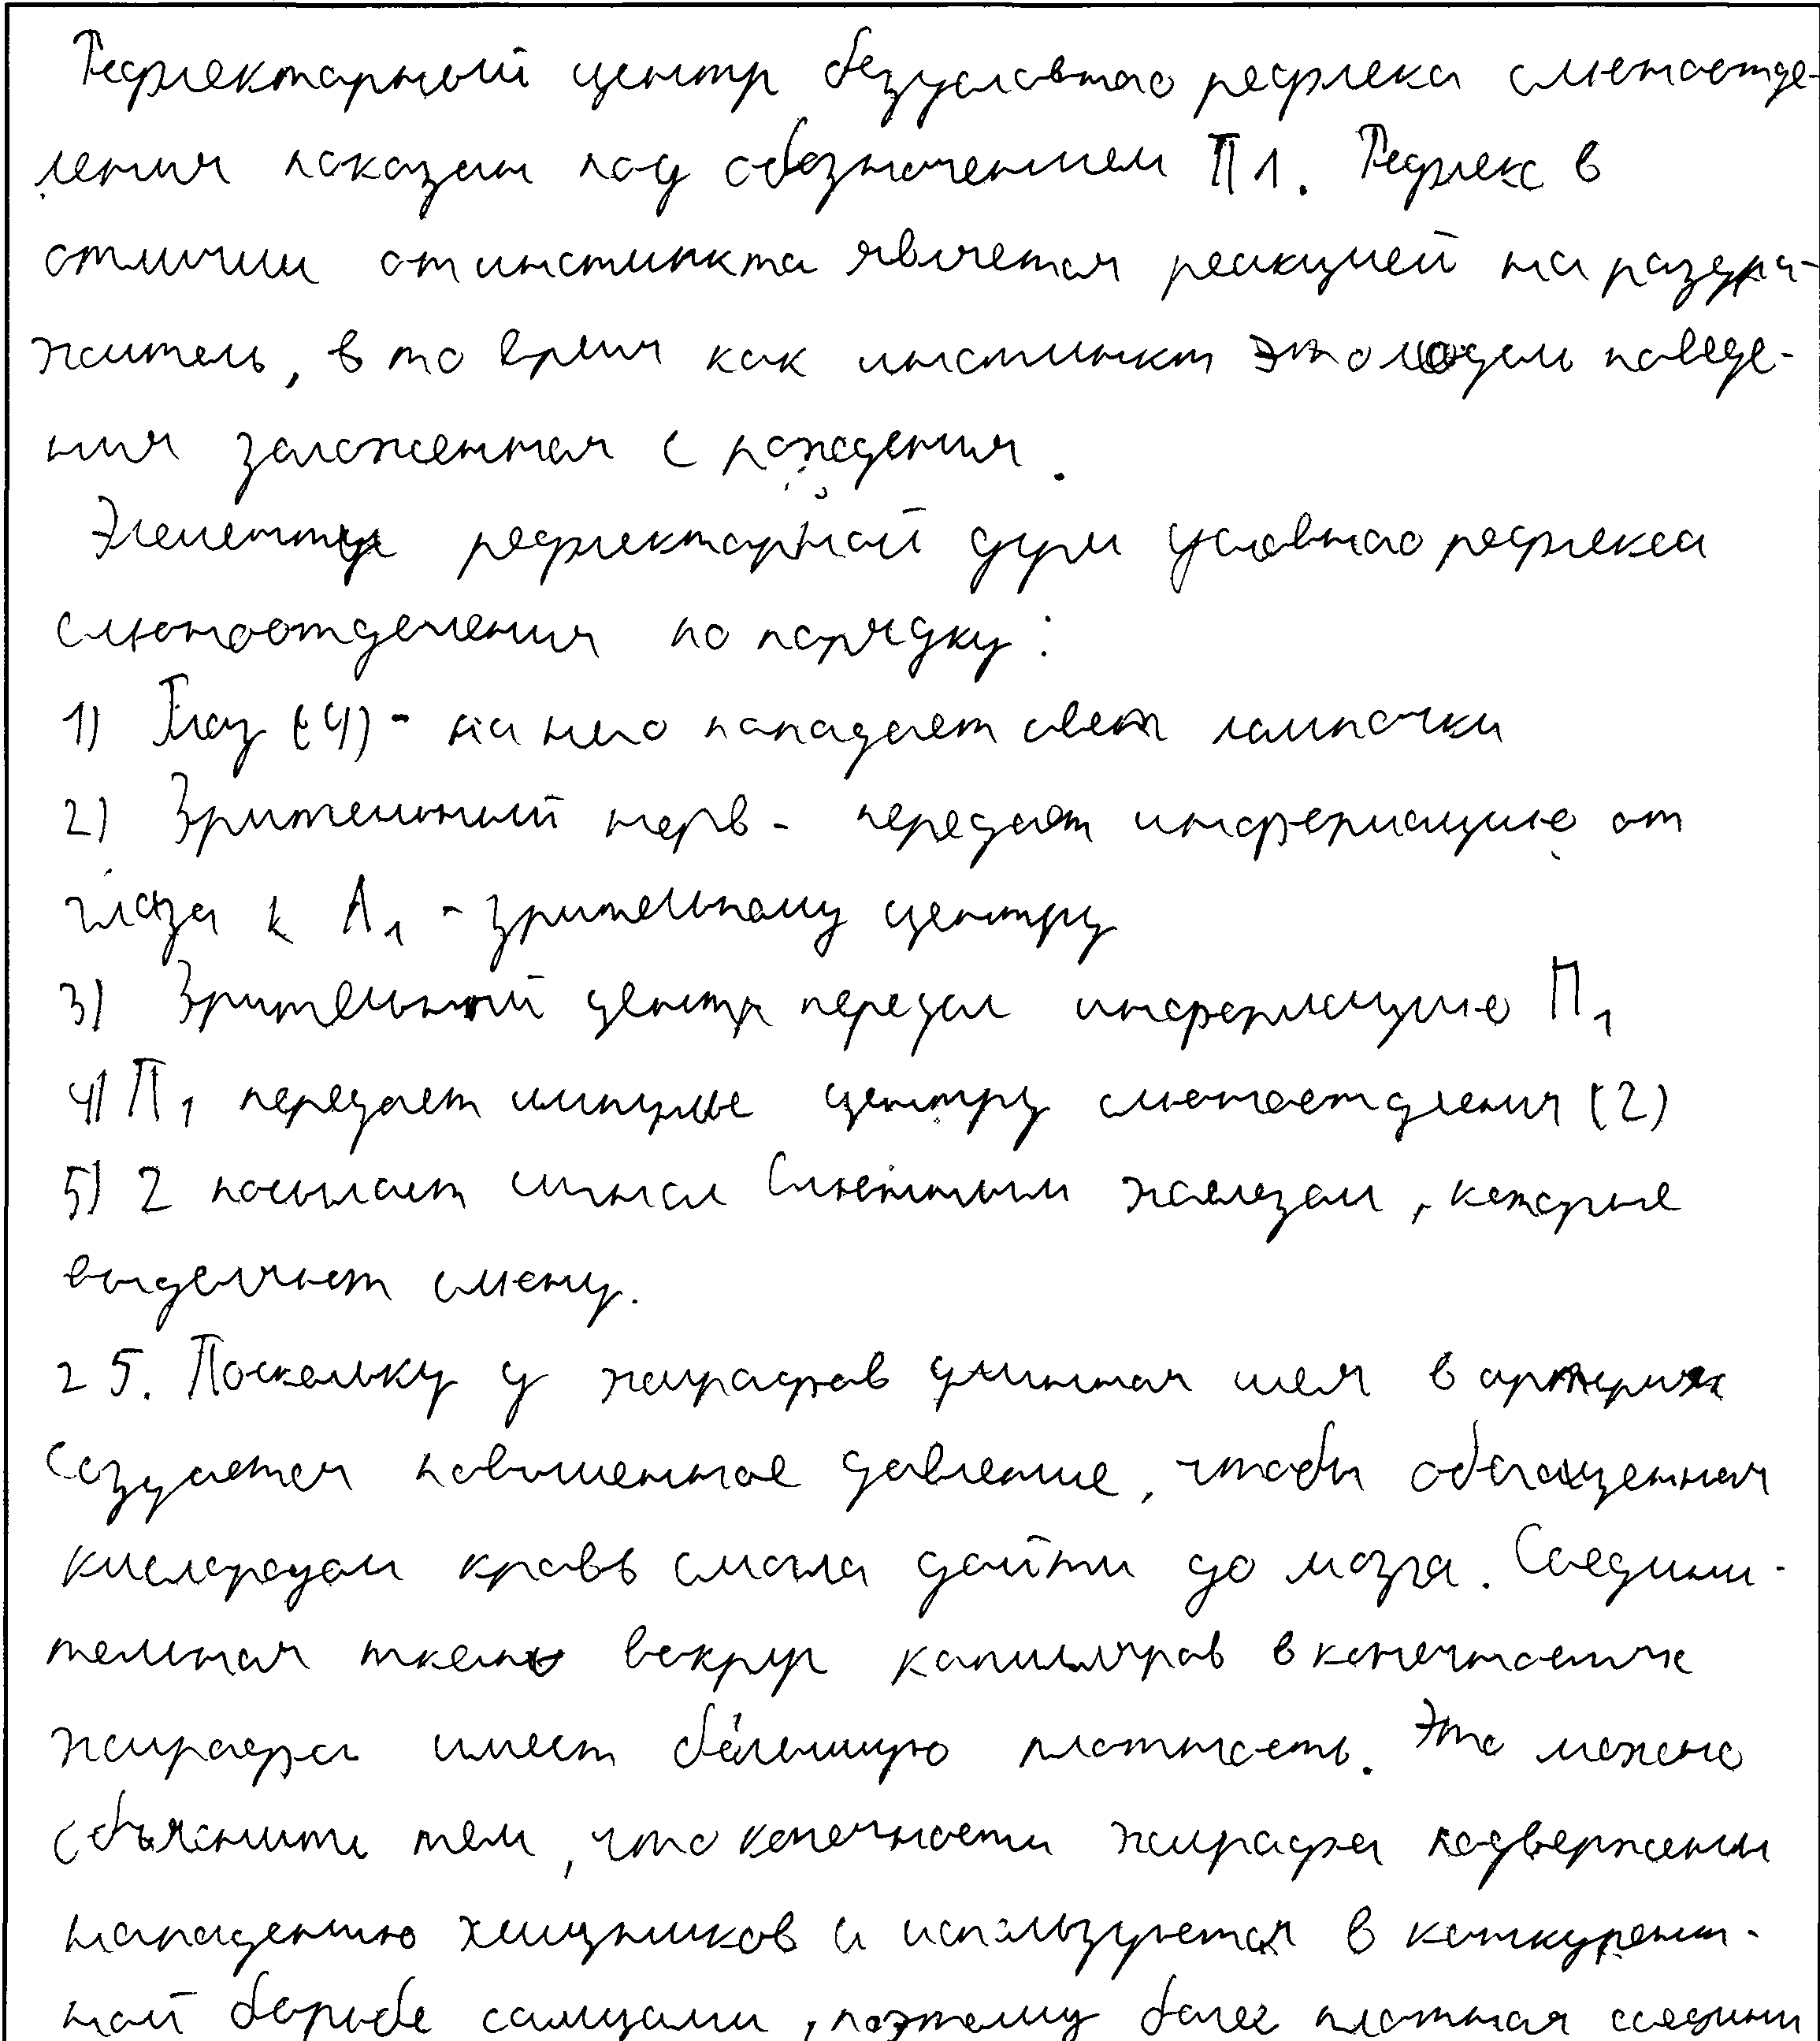 Рефлекторный центр безусловного рефлека слюноотде-
ления показан под обозначением П1. Рефлекс в
отличии от инстинкта является реакцией на раздра-
житель, в то время как инстинкт это модель поведе-
ния заложенная с рождения.
Элементы рефлекторной дуги условного рефлекса
слюноотделения по порядку:
1) Глаз (4) - на него попадает свет лампочки
2) Зрительный нерв - передает информацию от
глаза к А1 - зрительному центру
3) Зрительный центр передал информацию П1
4) П1 передает импульс центру слюноотделения (2)
5) 2 посылает сигнал слюнным железам, которые
выделяют слюну.
25. Поскольку у жирафов длинная шея в артериях
создается повышенное давление, чтобы обогащенная
кислородом кровь смогла дойти до мозга. Соедини-
тельная ткань вокруг капилляров в конечностях
жирафа имеет бо́льшую плотность. Это можно
объяснить тем, что конечности жирафа подвержены
нападению хищников и используется в конкурент-
ной борьбе самцами, поэтому более плотная соедини